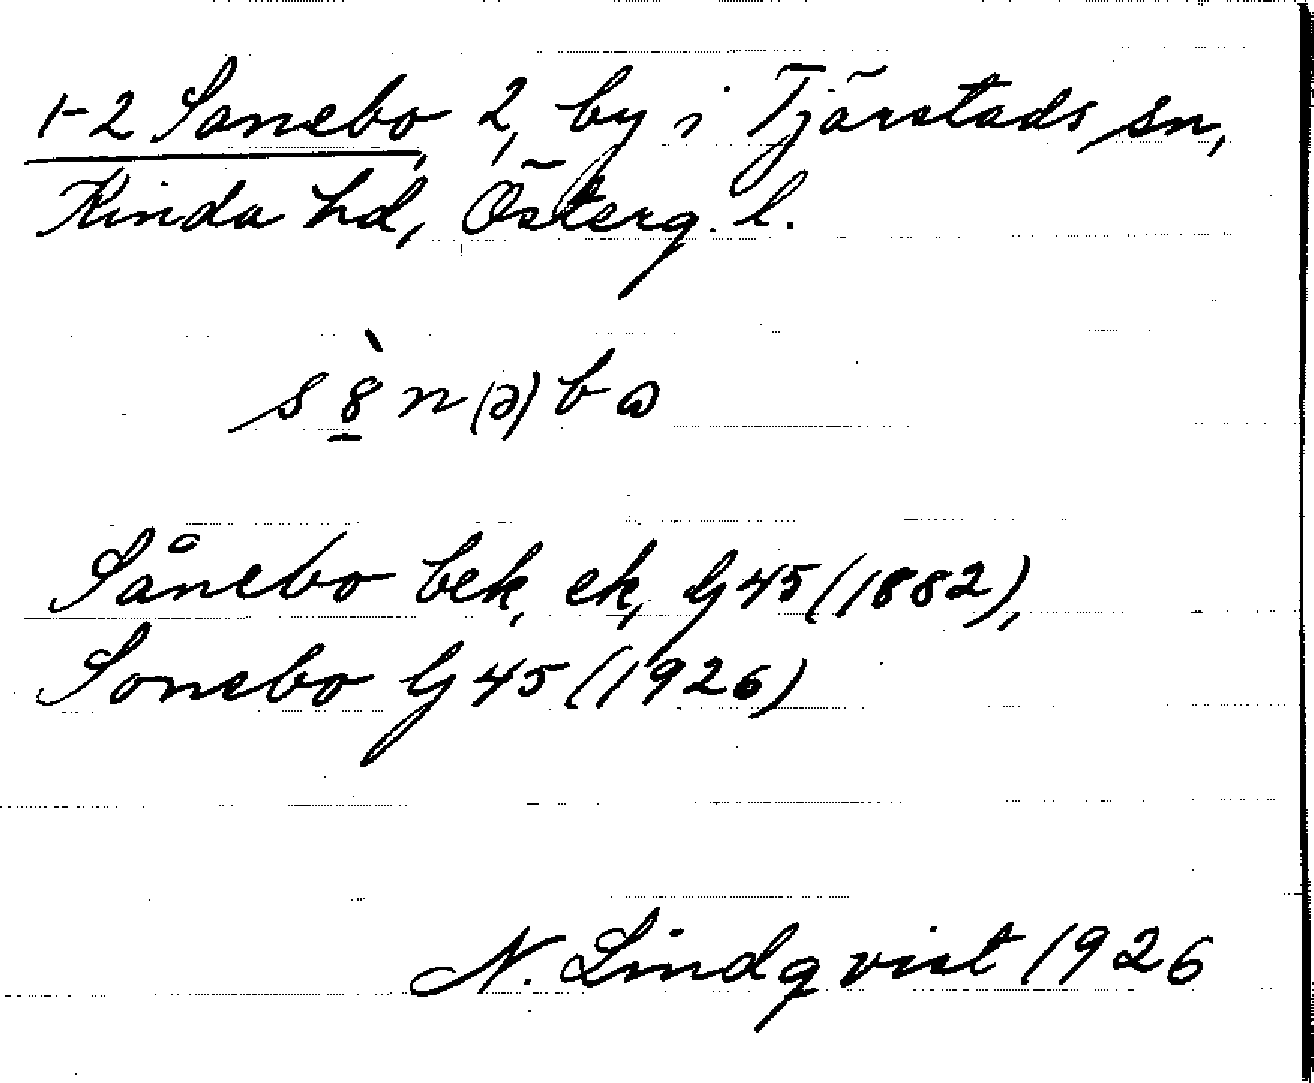 1-2 Sonebo, 2, by i Tjärstads sn,
Kinda hd, Österg. l.
s8̀n(ə)bω
Sånebo bek, ek, G45 (1882),
Sonebo G45 (1926)
N. Lindqvist 1926